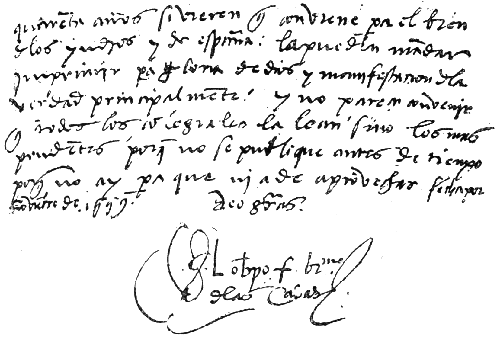 quarenta años si vieren q̃ conviene pa el bien
dlos yndios y de españa: la puedẽ mãdar
ynprimir pa gloria de dios y manifestacion dla
verdad principalmente: y no parece convenie
q̃ todos los colegiales la lean sino los mas
prudentes porq̃ no se publique antes de tiempo
porq̃ no ay pa que ni a de aprovechar fecha por
noviẽbre de .1559. deo gr̃as.
El obpo f. brme
dlas Casas